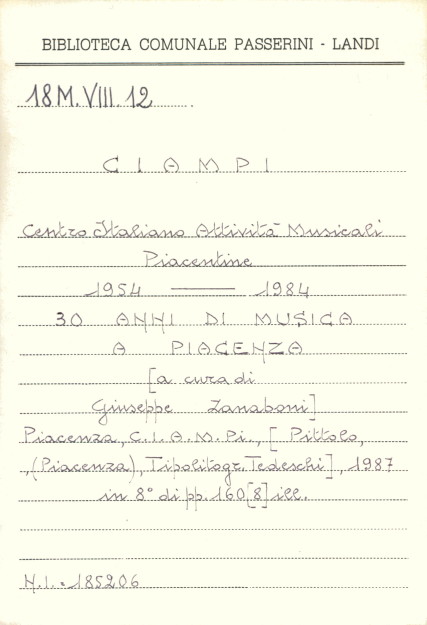 BIBLIOTECA COMUNALE PASSERINI - LANDI
18M.VIII.12
CIAMPI
Centro Italiano Attività Musicali
Piacentine
1954 — 1984
30 ANNI DI MUSICA
A PIACENZA
[a cura di
Giuseppe Zanaboni]
Piacenza, C.I.A.M.Pi., [ Pittolo,
,(Piacenza), Tipolitogr. Tedeschi], 1987
in 8° di pp. 160[8] ill.
N.I. 185206